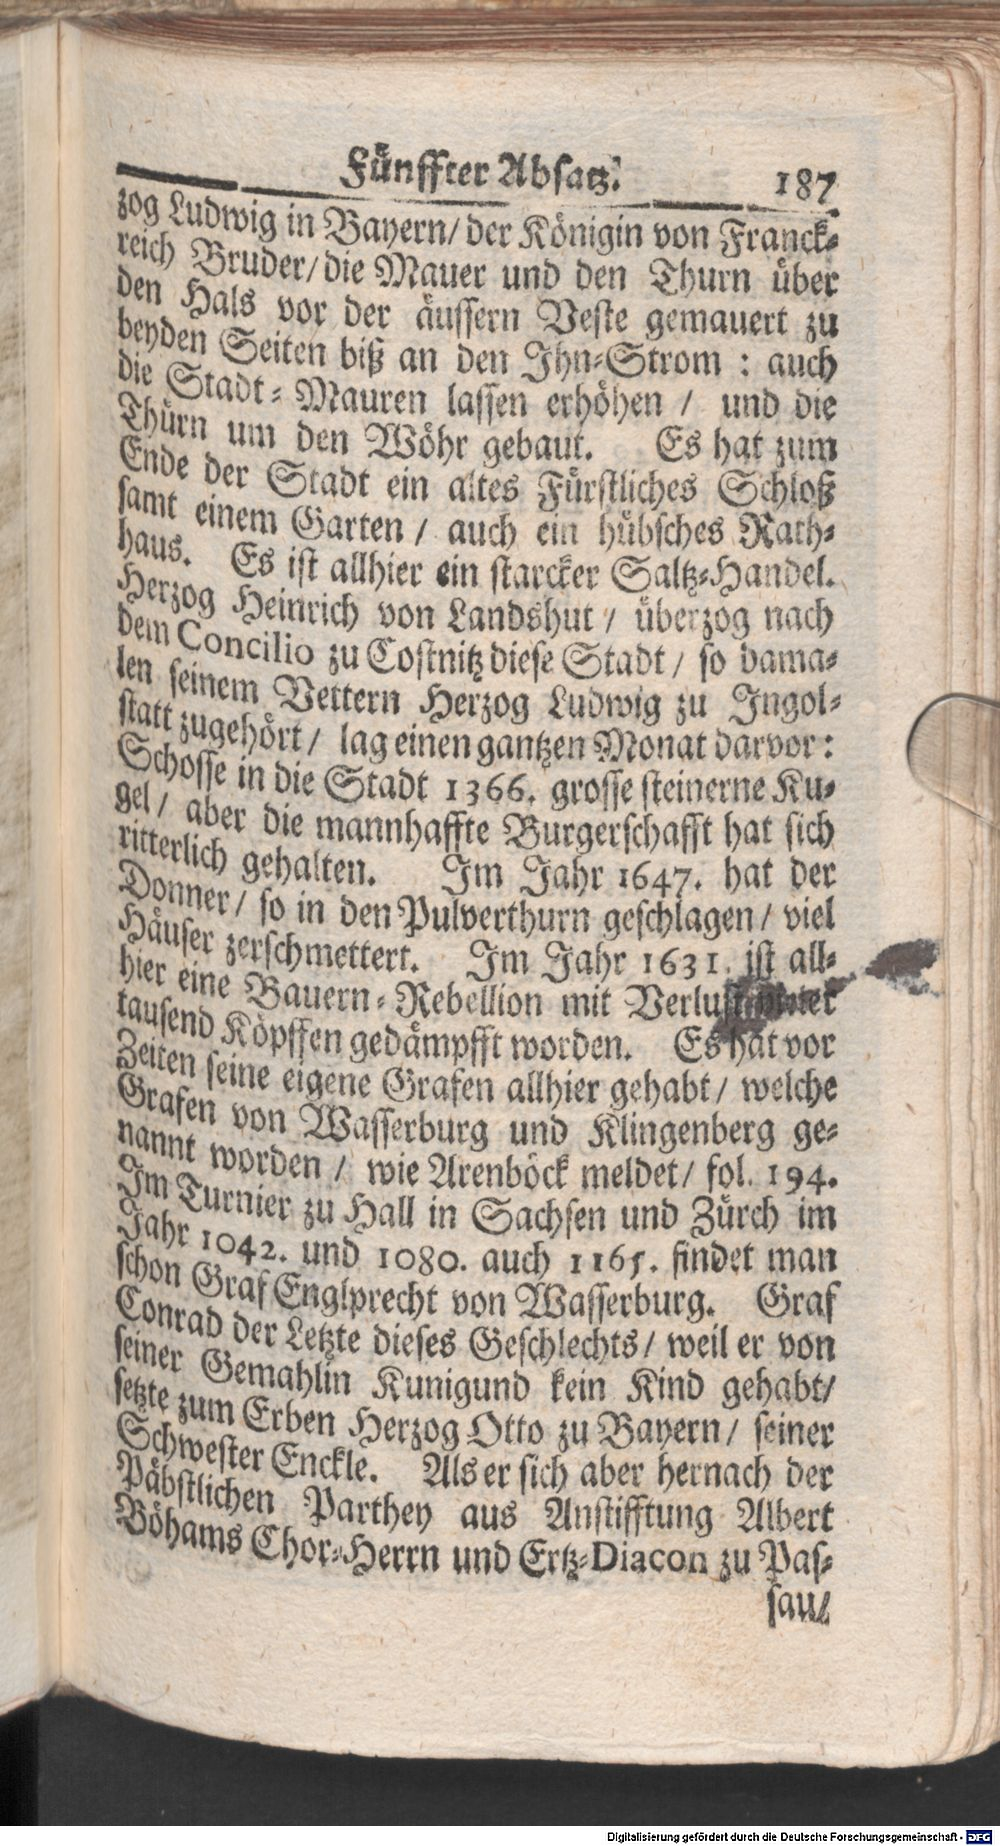 Fünffter Absatz. 187
zog Ludwig in Bayern/ der Königin von Franck-
reich Bruder/ die Mauer und den Thurn über
den Hals vor der äussern Veste gemauert zu
beyden Seiten biß an den Ihn-Strom : auch
die Stadt-Mauren lassen erhöhen / und die
Thürn um den Wöhr gebaut. Es hat zum
Ende der Stadt ein altes Fürstliches Schloß
samt einem Garten / auch ein hübsches Rath-
haus. Es ist allhier ein starcker Saltz-Handel.
Herzog Heinrich von Landshut / überzog nach
dem Concilio zu Costnitz diese Stadt / so dama-
len seinem Vettern Herzog Ludwig zu Ingol-
statt zugehört / lag einen gantzen Monat darvor:
Schosse in die Stadt 1366. grosse steinerne Ku-
gel / aber die mannhaffte Burgerschafft hat sich
ritterlich gehalten. Im Jahr 1647. hat der
Donner / so in den Pulverthurn geschlagen / viel
Häuser zerschmettert. Im Jahr 1631. ist all-
hier eine Bauern-Rebellion mit Verlust
tausend Köpffen gedämpfft worden. Es hat vor
Zeiten seine eigene Grafen allhier gehabt / welche
Grafen von Wasserburg und Klingenberg ge-
nannt worden / wie Arenböck meldet / fol. 194.
Im Turnier zu Hall in Sachsen und Zürch im
Jahr 1042. und 1080. auch 1165. findet man
schon Graf Englprecht von Wasserburg. Graf
Conrad der Letzte dieses Geschlechts / weil er von
seiner Gemahlin Kunigund kein Kind gehabt/
setzte zum Erben Herzog Otto zu Bayern / seiner
Schwester Enckle. Als er sich aber hernach der
Päbstlichen Parthey aus Anstifftung Albert
Böhams Chor-Herrn und Ertz-Diacon zu Pas-
sau/
Digitalisierung gefördert durch die Deutsche Forschungsgemeinschaft - DFG